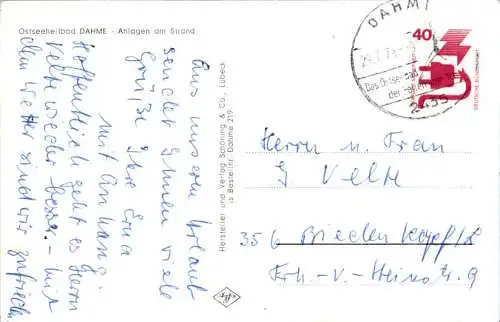 Ostseeheilbad DAHME - Anlagen am Strand
Aus unserem Urlaub
sendet Ihnen viele
Grüße Ihre Erna
mit Anhang.
Hoffentlich geht es Herrn
Velte wieder besser. - mit
dem Wetter sind wir zufrieden
Hersteller und Verlag Schöning & Co., Lübeck
Bestellnr. Dahme 219
DAHME
Das Ostseebad
2435
40
DEUTSCHE BUNDESPOST
Herrn u. Frau
J Velte
356 Biedenkopf/L
Frh.-v.-Stein-Str. 9